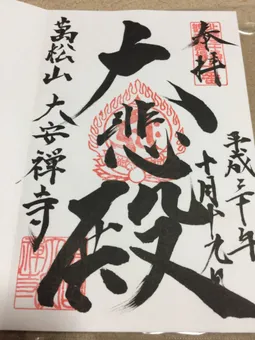 奉拝
平成三十年
十月十九日
大悲殿
萬松山 大安禅寺